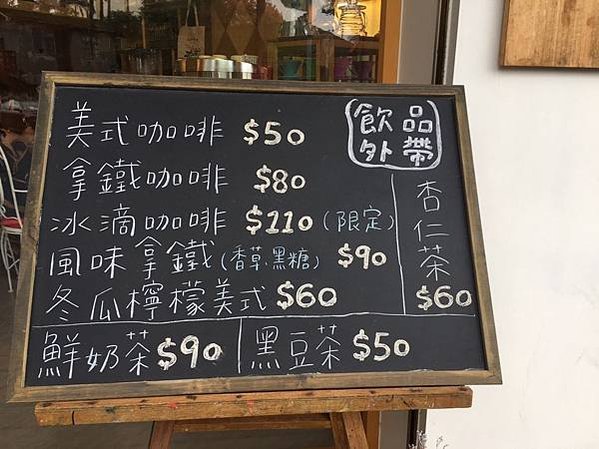 飲品
外帶
美式咖啡 $50
拿鐵咖啡 $80
冰滴咖啡 $110 (限定)
風味拿鐵 (香草.黑糖) $90
冬瓜檸檬美式 $60
杏仁茶
$60
鮮奶茶 $90
黑豆茶 $50